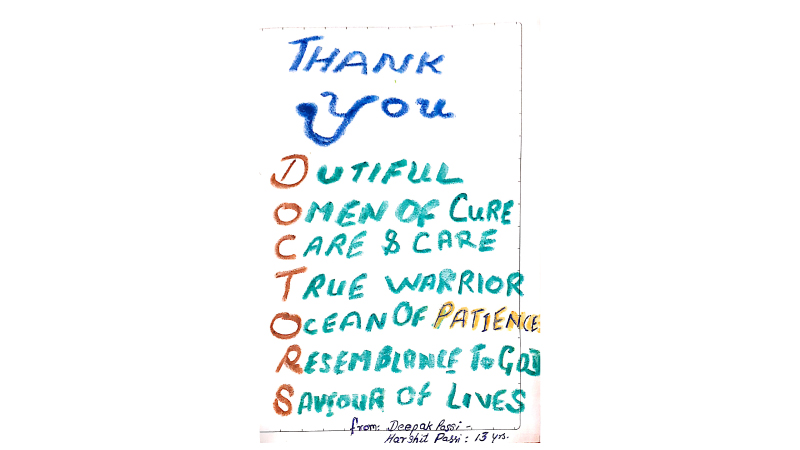 THANK
YOU
DUTIFUL
OMEN OF CURE
CARE & CARE
TRUE WARRIOR
OCEAN OF PATIENCE
RESEMBLANCE TO GOD
SAVIOUR OF LIVES
from: Deepak Passi -
Harshit Passi: 13 yrs.